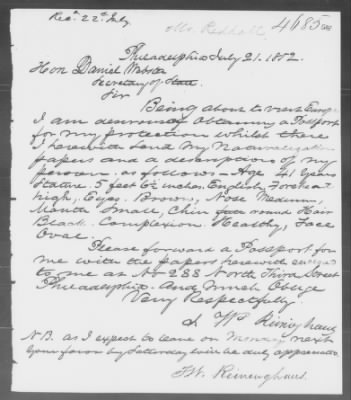 Recd. 22d July
4685
Philadelphia July 21. 1852.
Hon Daniel Webster
Secretary of State
Sir
Being about to visit Europe
I am desirous of obtaining a Passport
for my protection whilst there
I herewith send my Naturalization
papers and a description of my
person as follows Age 41 Years
Stature 5 feet 6½ inches English Forehead
high, Eyes Brown, Nose Medium,
Mouth Small, Chin round Hair
Black. Complexion Healthy, Face
Oval.
Please forward a Passport for
me with the papers herewith enclosed
to me at No 238 North Third Street
Philadelphia. And much Oblige
Very Respectfully
NB. as I expect to leave on Monday next
Your favor by Saturday will be duly appreciated